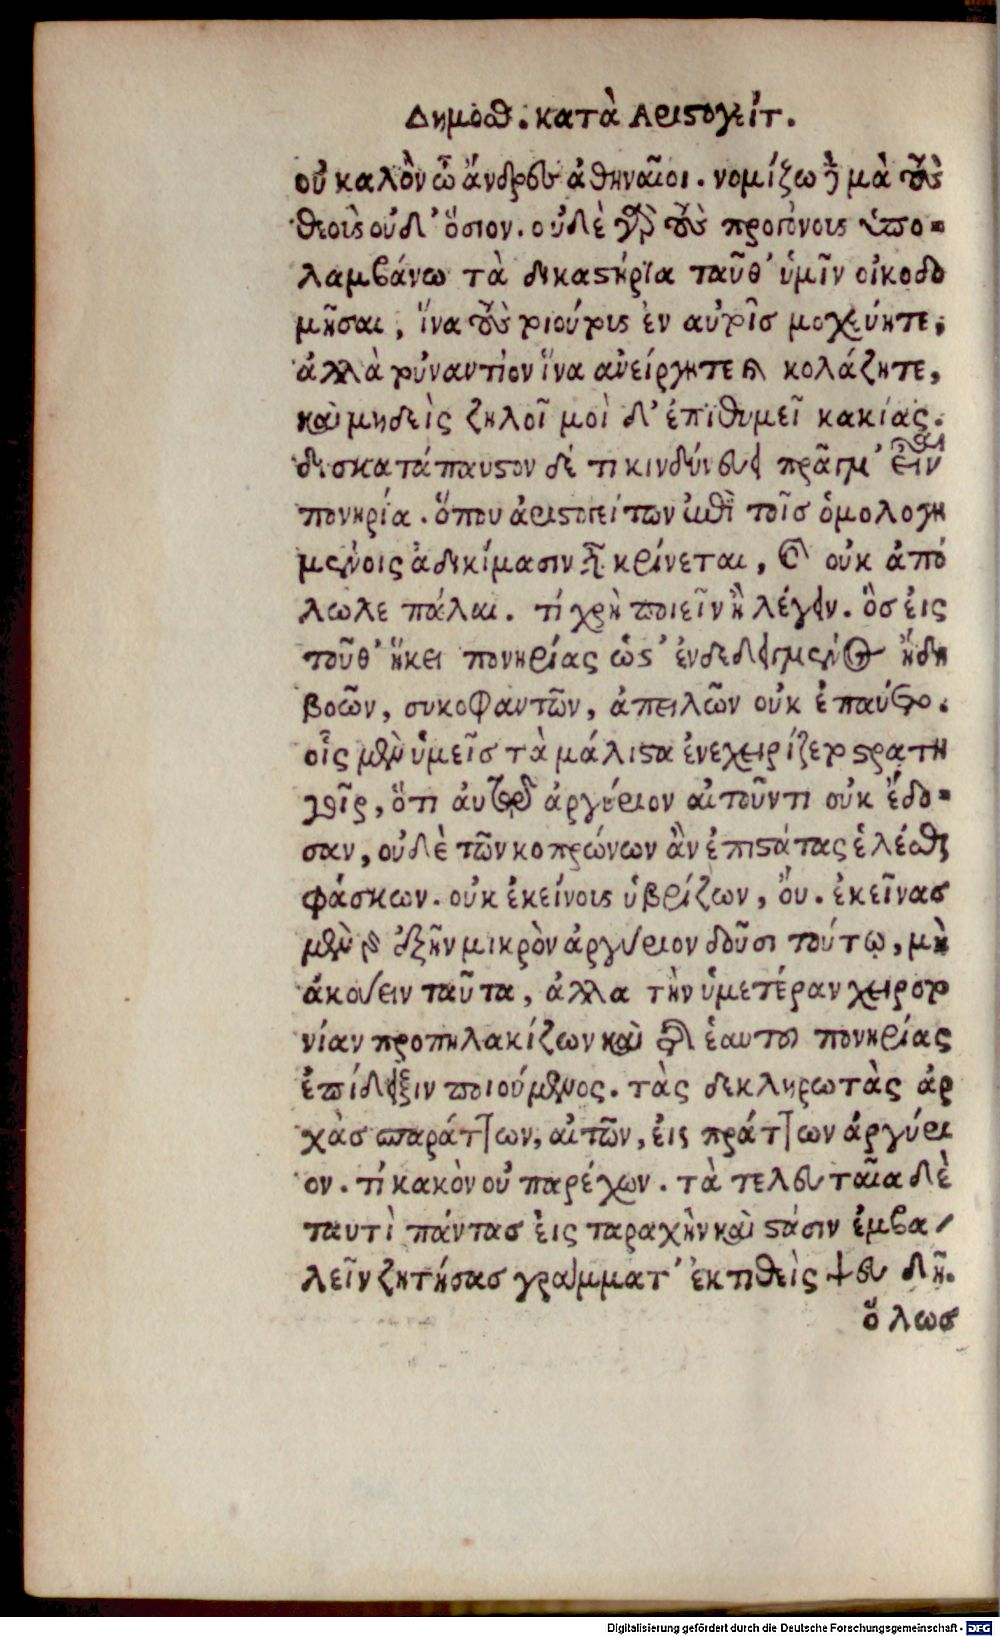 Δημοσθ. κατὰ Αριστογείτ.
οὐ καλὸν ὦ ἄνδρες ἀθηναῖοι. νομίζω δὲ μὰ τοὺς
θεοὺς οὐδ' ὅσιον. οὐδὲ γὰρ τοὺς προγόνους ὑπο-
λαμβάνω τὰ δικαστήρια ταῦθ' ὑμῖν οἰκοδο
μῆσαι, ἵνα τοὺς τοιούτους ἐν αὐτοῖσ μοχεύητε,
ἀλλὰ τοὐναντίον ἵνα ἀνείργητε καὶ κολάζητε,
καὶ μηδεὶς ζηλοῖ μοὶ δ' ἐπιθυμεῖ κακίας.
δισκατάπαυστον δέ τι κινδυνεύει πρᾶγμ' εἶναι
πονηρία. ὅπου ἀριστογείτων ἐπὶ τοῖσ ὁμολογη
μένοις ἀδικίμασιν κρίνεται, καὶ οὐκ ἀπό
λωλε πάλαι. τί χρὴ ποιεῖν ἢ λέγειν. ὃσ εἰς
τοῦθ' ἥκει πονηρίας ὥστ' ἐνδεδειγμένος ἤδη
βοῶν, συκοφαντῶν, ἀπειλῶν οὐκ ἐπαύετο.
οἷς μὲν ὑμεῖσ τὰ μάλιστα ἐνεχειρίζετο στρατη
γοῖς, ὅτι αὐτῷ ἀργύριον αἰτοῦντι οὐκ ἔδο-
σαν, οὐδὲ τῶν κοπρώνων ἂν ἐπιστάτας ἑλέσθαι
φάσκων. οὐκ ἐκείνους ὑβρίζων, ὄυ. ἐκεῖνασ
μὲν γὰρ ἐξῆν μικρὸν ἀργύριον δοῦσι τούτῳ, μὴ
ἀκούειν ταῦτα, ἀλλα τὴν ὑμετέραν χειροτο
νίαν προπηλακίζων καὶ τῆς ἑαυτοῦ πονηρίας
ἐπίδειξιν ποιούμενος. τὰς δεκληρωτὰς ἀρ
χὰσ σπαράττων, αἰτῶν, ἐις πράττων ἀργύρι
ον. τί κακὸν οὐ παρέχων. τὰ τελευταῖα δὲ
ταυτὶ πάντασ ἐις ταραχὴν καὶ στάσιν ἐμβα
λεῖν ζητήσασ γραμματ' ἐκτιθεὶς ψευδῆ.
ὅλωσ
Digitalisierung gefördert durch die Deutsche Forschungsgemeinschaft - DFG